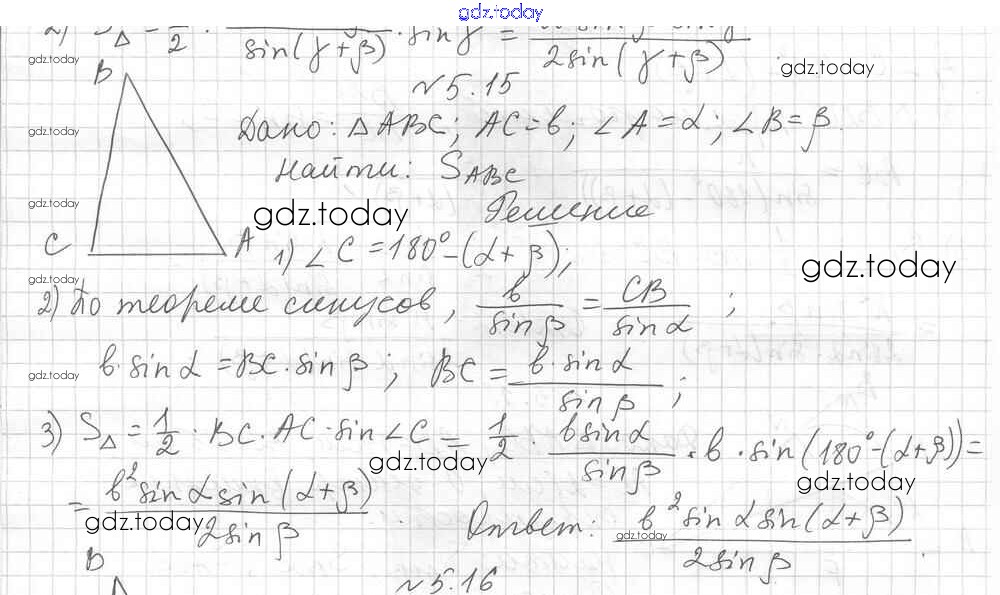 gdz.today
2) S△ = 1/2 · / sin(γ+β) · sin γ = / 2sin(γ+β)
gdz.today
gdz.today
№5.15
B
gdz.today
Дано: △ABC; AC=b; ∠A=α; ∠B=β.
Найти: S_ABC
gdz.today
gdz.today
Решение
C A
1) ∠C=180°-(α+β);
gdz.today
gdz.today
2) По теореме синусов, b/sin β = CB/sin α ;
gdz.today
b·sin α = BC·sin β; BC = b·sin α/sin β ;
3) S△ = 1/2 · BC·AC·sin∠C = 1/2 · b sin α/sin β · b · sin(180°-(α+β)) =
gdz.today
gdz.today
= b² sin α sin(α+β)/2 sin β . Ответ: b² sin α sin(α+β)/2 sin β .
gdz.today
gdz.today
B
№5.16